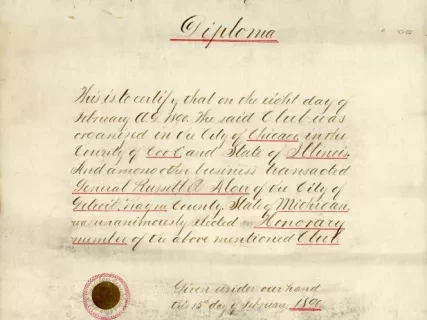 Diploma
This is to certify that on the eight day of
February A.D. 1890. The said Club was
organised in the City of Chicago, in the
County of Cook and State of Illinois.
And among other business transacted
General Russell A. Alger of the City of
Detroit, Wayne County, State of Michigan,
was unanimously elected an Honorary
member of the above mentioned Club.
Given under our hand
this 15th day of February 1890.